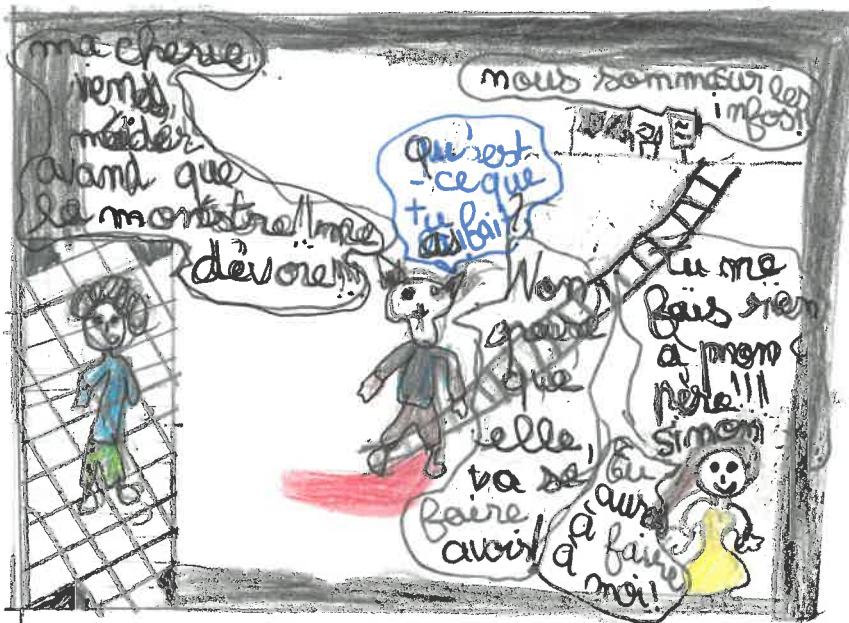 ma cherie
viens,
m'aider
avand que
la monstre!! me
dévore!!!
nous sommesur les
infos!!
qu'sest
-ce que
tu fait?
as
Non
parce
que
elle,
va se
faire
avoir!
tu me
fais rien
a mon
père!!!
sinon
tu
auras
à faire
à moi!